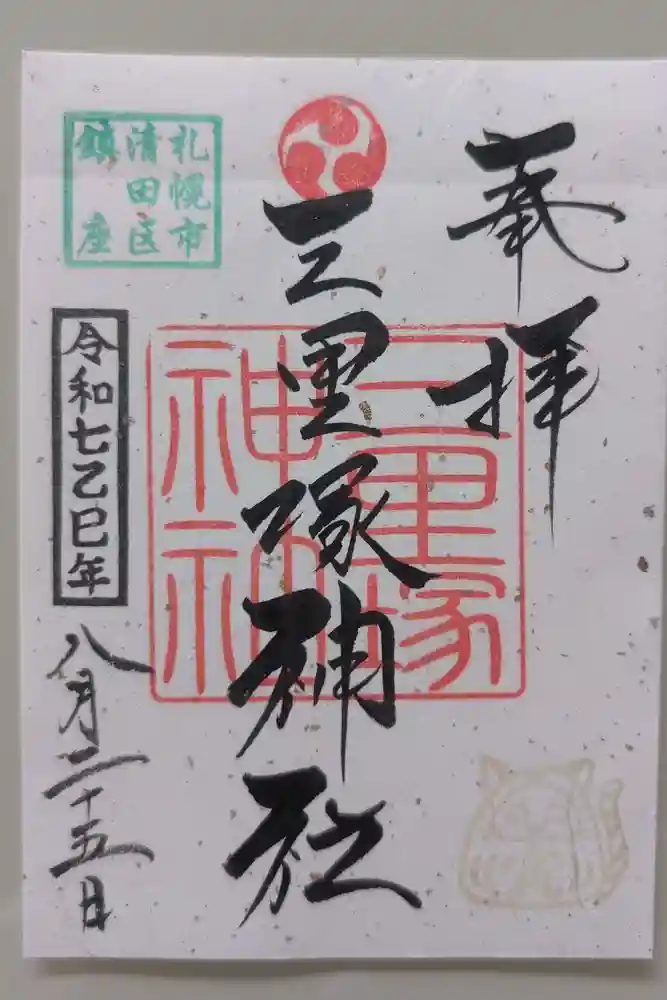 奉拝
三里塚神社
三里塚
神社
札幌市
清田区
鎮座
令和七乙巳年
八月二十五日